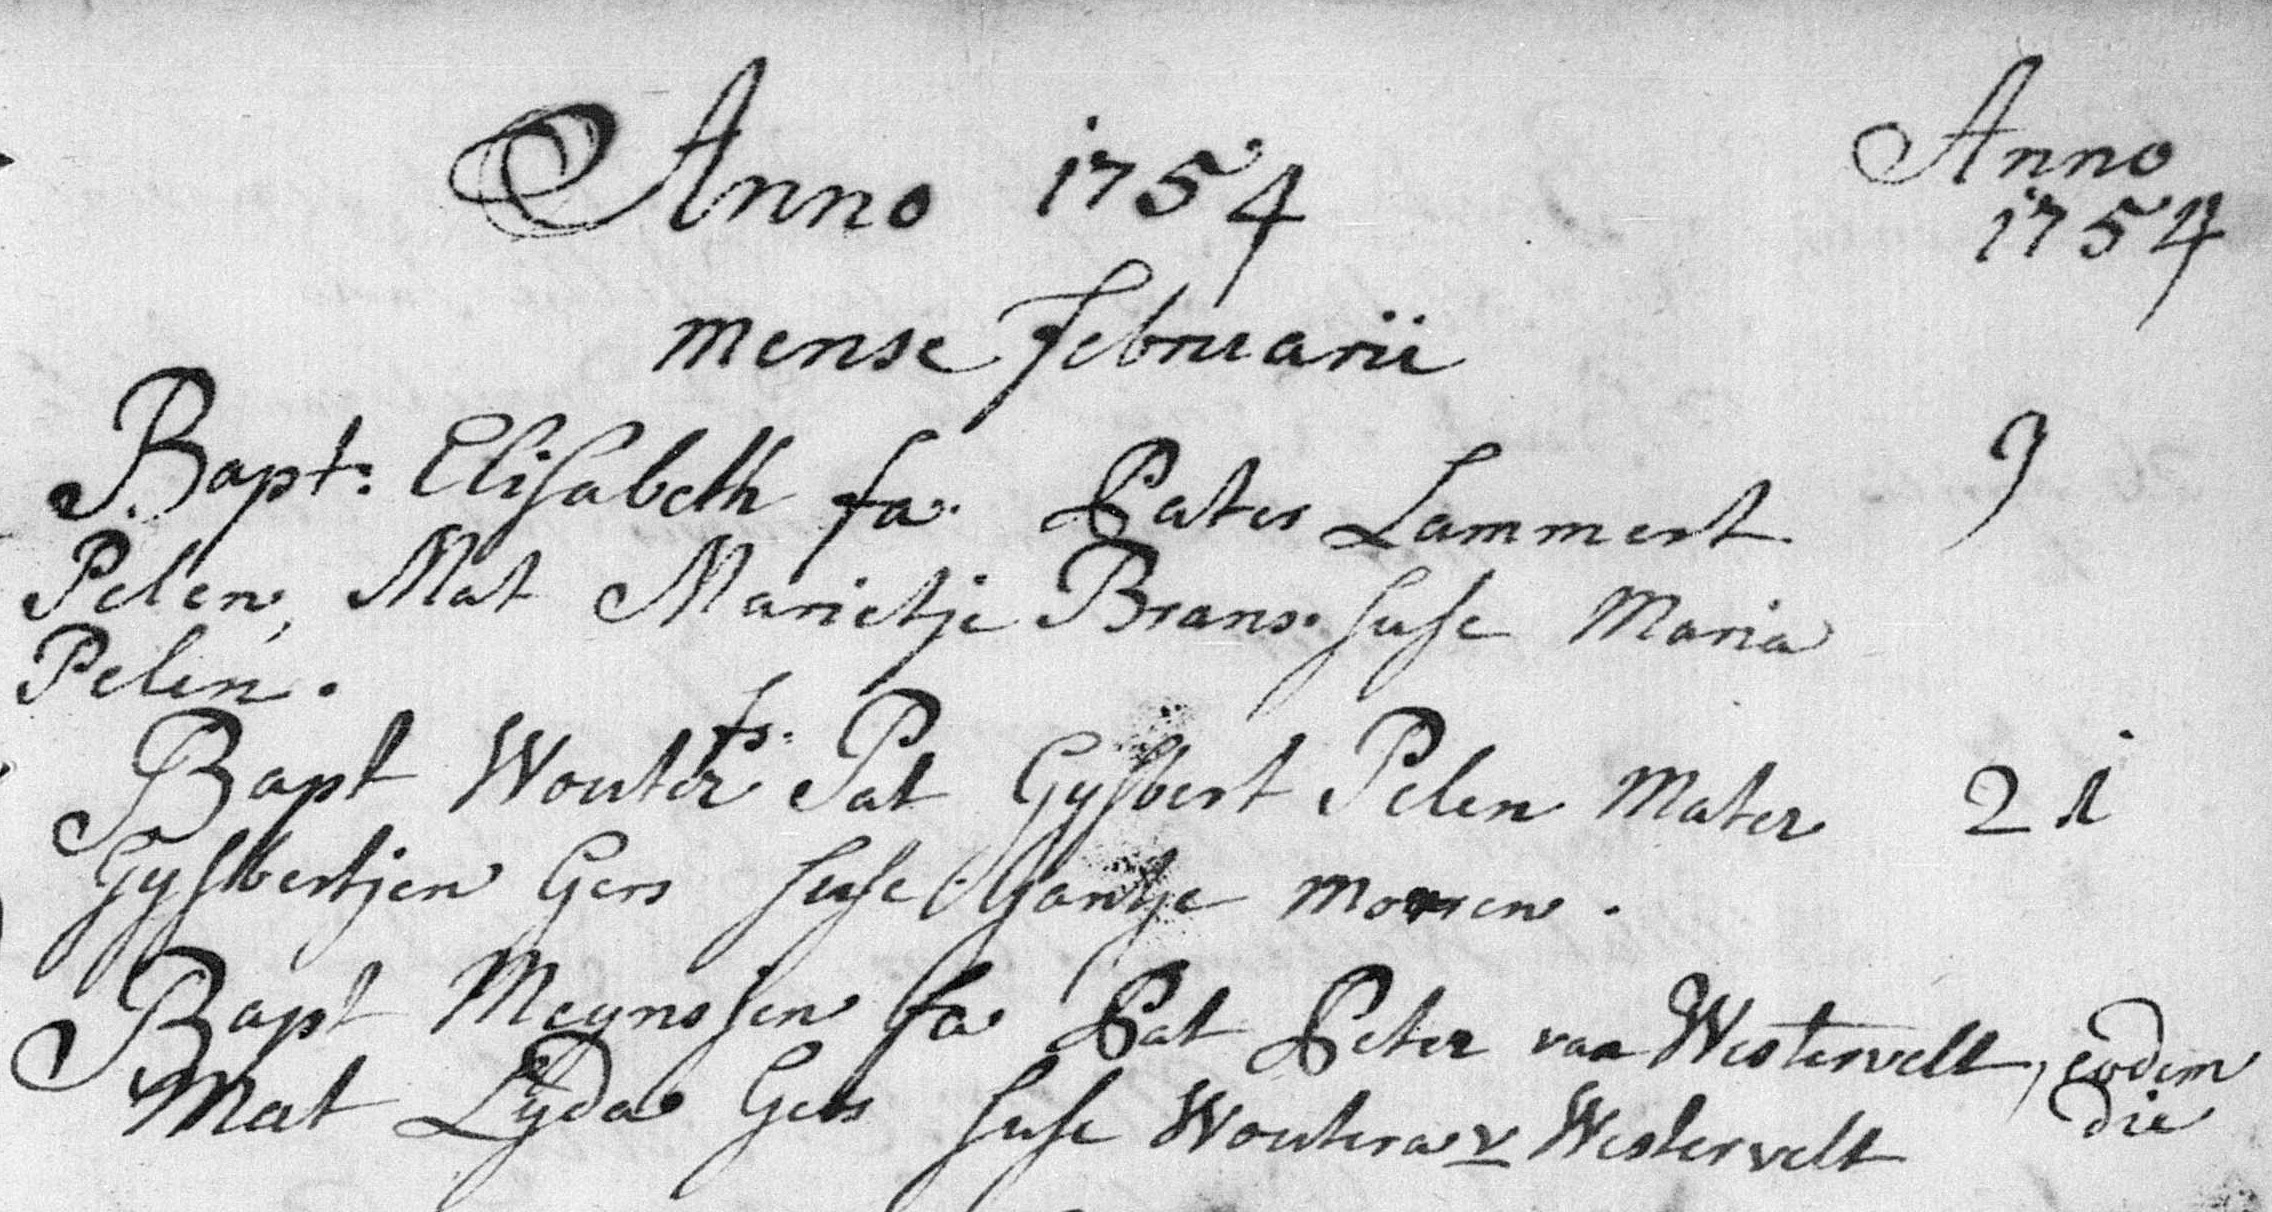 Anno 1754
Anno
1754
mense Februarii
Bapt. Elisabeth fa. Pater Lammert 9
Pelen, Mat Marietje Brans. suse Maria
Pelen.
Bapt Wouter fs. Pat Gysbert Pelen Mater 21
Gysbertjen Gers suse Jantje morren.
Bapt Meynsjen fa Pat Peter van Westervelt, eodem
Mat Lyda Gers suse Woutera v Westervelt die